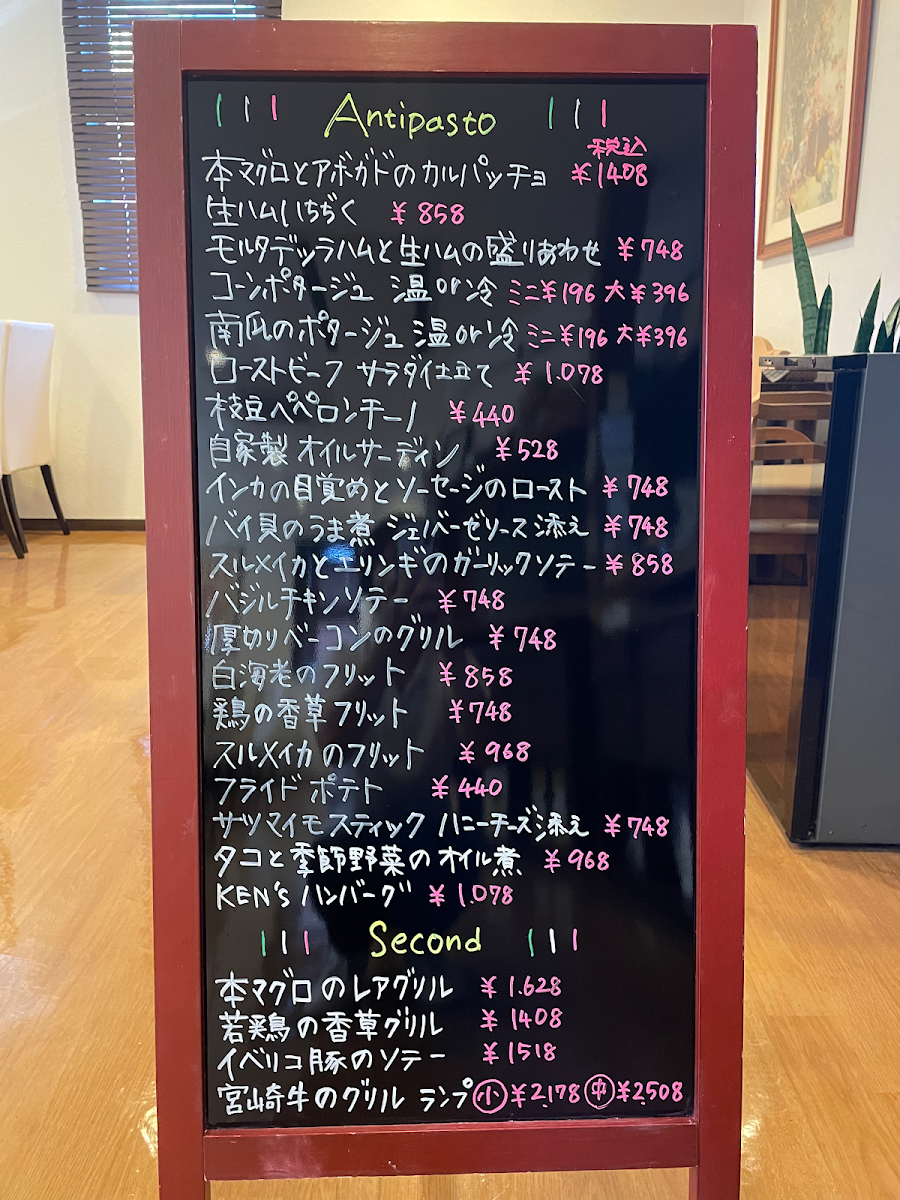 Antipasto
税込
本マグロとアボガドのカルパッチョ ¥1408
生ハムいちぢく ¥858
モルタデッラハムと生ハムの盛りあわせ ¥748
コーンポタージュ 温or冷 ミニ¥196 大¥396
南瓜のポタージュ 温or冷 ミニ¥196 大¥396
ローストビーフ サラダ仕立て ¥1.078
枝豆ペペロンチーノ ¥440
自家製オイルサーディン ¥528
インカの目覚めとソーセージのロースト ¥748
バイ貝のうま煮 ジェノバーゼソース添え ¥748
スルメイカとエリンギのガーリックソテー ¥858
バジルチキンソテー ¥748
厚切りベーコンのグリル ¥748
白海老のフリット ¥858
鶏の香草フリット ¥748
スルメイカのフリット ¥968
フライドポテト ¥440
サツマイモスティック ハニーチーズ添え ¥748
タコと季節野菜のオイル煮 ¥968
KEN's ハンバーグ ¥1.078
Second
本マグロのレアグリル ¥1.628
若鶏の香草グリル ¥1408
イベリコ豚のソテー ¥1518
宮崎牛のグリル ランプ 小 ¥2,178 中 ¥2,508